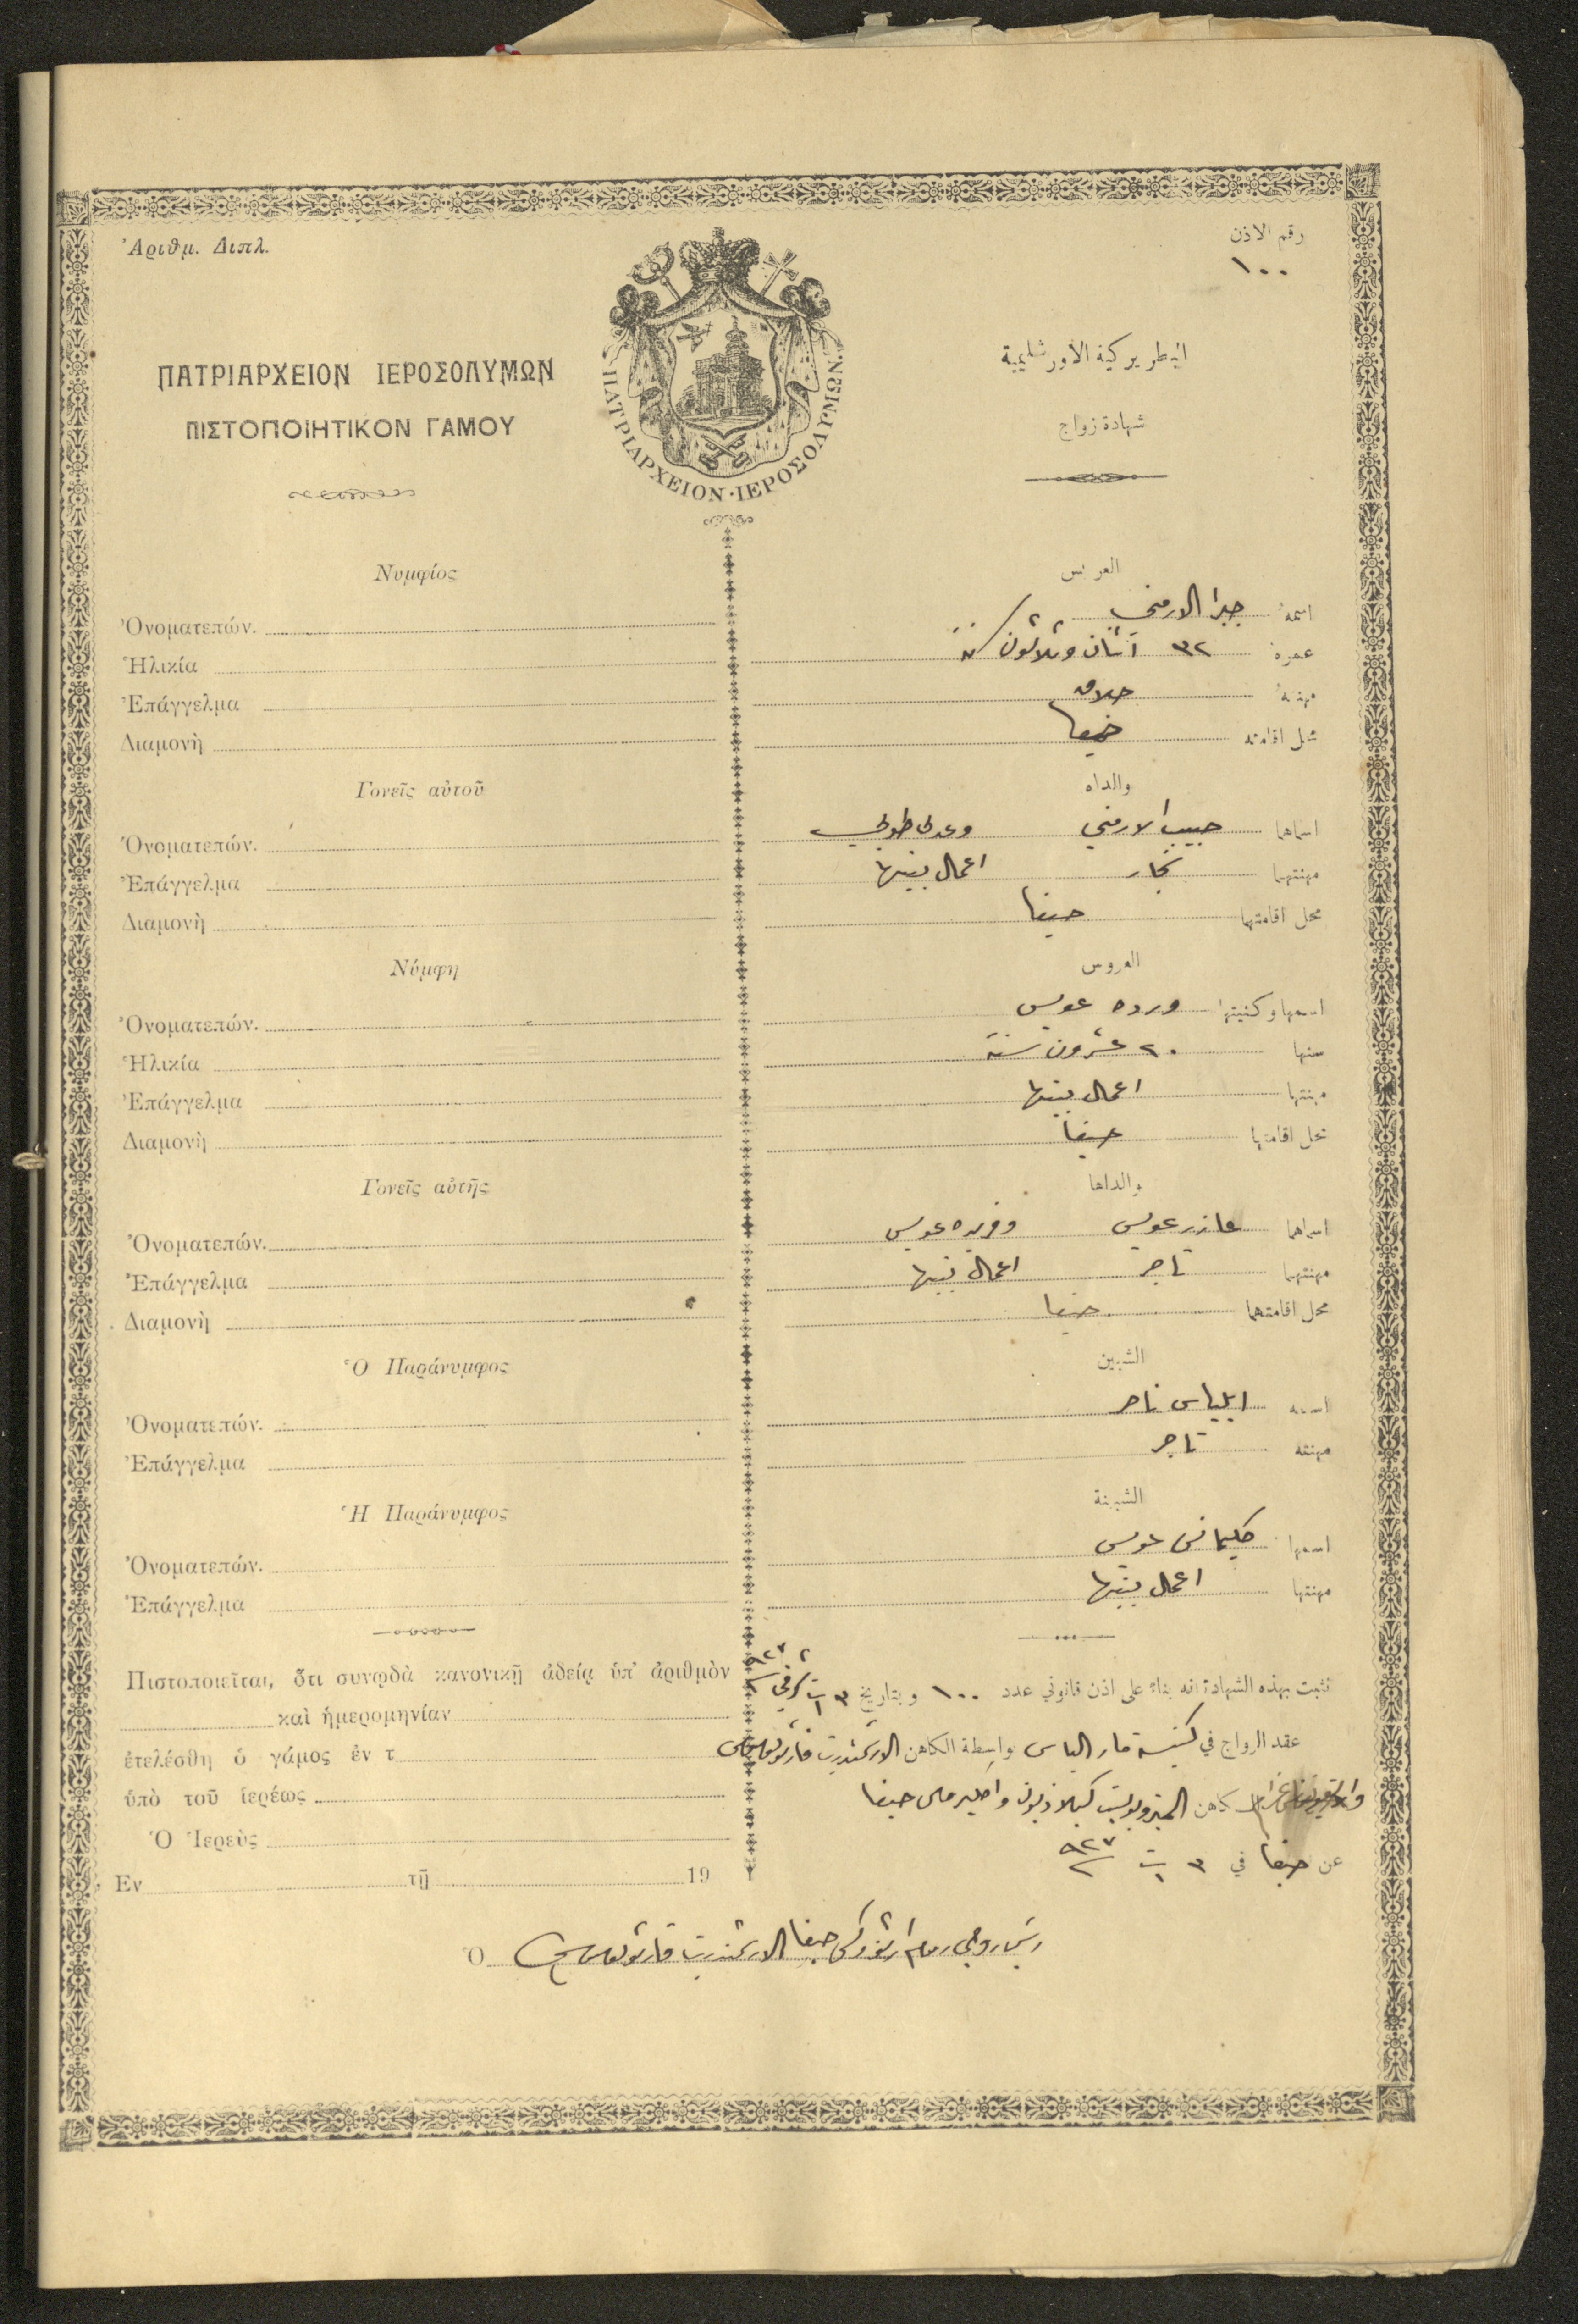 Ἀριθμ. Διπλ.
رقم الاذن
١٠٠
ΠΑΤΡΙΑΡΧΕΙΟΝ ΙΕΡΟΣΟΛΥΜΩΝ
ΠΙΣΤΟΠΟΙΗΤΙΚΟΝ ΓΑΜΟΥ
ΠΑΤΡΙΑΡΧΕΙΟΝ·ΙΕΡΟΣΟΛΥΜΩΝ
البطريركية الاورشليمية
شهادة زواج
Νυμφίος
Ὀνοματεπών.
Ἡλικία
Ἐπάγγελμα
Διαμονὴ
Γονεῖς αὐτοῦ
Ὀνοματεπών.
Ἐπάγγελμα
Διαμονὴ
Νύμφη
Ὀνοματεπών.
Ἡλικία
Ἐπάγγελμα
Διαμονὴ
Γονεῖς αὐτῆς
Ὀνοματεπών.
Ἐπάγγελμα
Διαμονὴ
Ὁ Παράνυμφος
Ὀνοματεπών.
Ἐπάγγελμα
Ἡ Παράνυμφος
Ὀνοματεπών.
Ἐπάγγελμα
Πιστοποιεῖται, ὅτι συνῳδὰ κανονικῇ ἀδείᾳ ὑπ' ἀριθμὸν
καὶ ἡμερομηνίαν
ἐτελέσθη ὁ γάμος ἐν τ
ὑπὸ τοῦ ἱερέως
Ὁ Ἱερεὺς
Ἐν τῇ 19
العريس
اسمه جبرا الارمني
عمره ٣٢ اثنان وثلاثون سنة
مهنته حلاق
محل اقامته حيفا
والداه
اسماهما حبيب الارمني وعدلى طوبي
مهنتهما نجار اعمال بيتها
محل اقامتهما حيفا
العروس
اسمها وكنيتها ورده عويس
سنها ٢٠ عشرون سنة
مهنتها اعمال بيتها
محل اقامتها حيفا
والداها
اسماهما عازر عويس وفريده عويس
مهنتهما تاجر اعمال بيتها
محل اقامتهما حيفا
الشبين
اسمه ايلياس ناصر
مهنته تاجر
الشبينة
اسمها عويس
مهنتها اعمال بيتها
نثبت بهذه الشهادة انه بناء على اذن قانوني عدد ١٠٠ وبتاريخ ٣ ت١ ٩٢٧
عقد الزواج في كنيسة مار الياس بواسطة الكاهن الارشمندريت
كاهن المتروبوليت حيفا
عن حيفا في ٣ ت١ ٩٢٧
Ὁ رئيس روحي روم ارثوذكس حيفا الارشمندريت